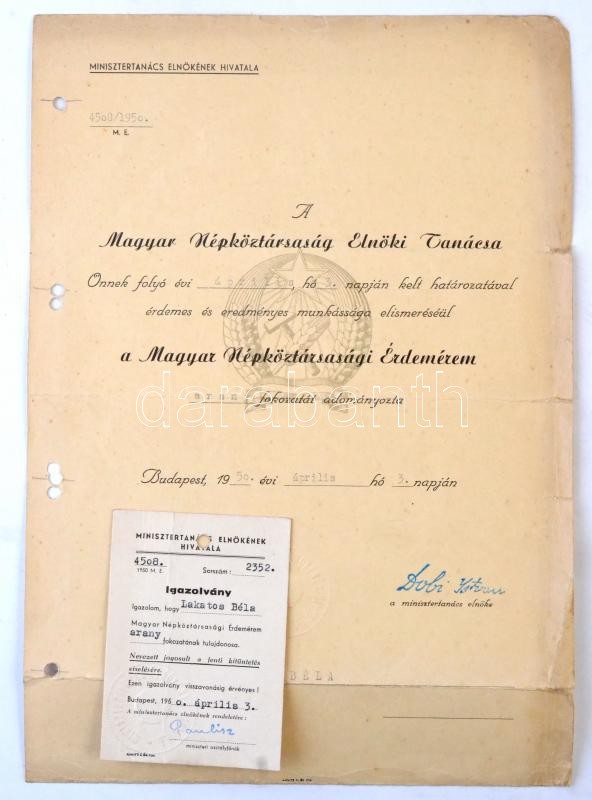 MINISZTERTANÁCS ELNÖKÉNEK HIVATALA
45o8/195o.
M. E.
A
Magyar Népköztársaság Elnöki Tanácsa
Önnek folyó évi április hó 3. napján kelt határozatával
érdemes és eredményes munkássága elismeréséül
a Magyar Népköztársasági Érdemérem
arany fokozatát adományozta
darabanth
Budapest, 195o. évi április hó 3. napján
Dobi István
a minisztertanács elnöke
BÉLA
MINISZTERTANÁCS ELNÖKÉNEK
HIVATALA
45o8.
1950 M. E.
Sorszám: 2352.
Igazolvány
Igazolom, hogy Lakatos Béla
Magyar Népköztársasági Érdemérem
arany fokozatának tulajdonosa.
Nevezett jogosult a fenti kitüntetés
viselésére.
Ezen igazolvány visszavonásig érvényes!
Budapest, 195o. április 3.
A minisztertanács elnökének rendeletére:
miniszteri osztályfőnök